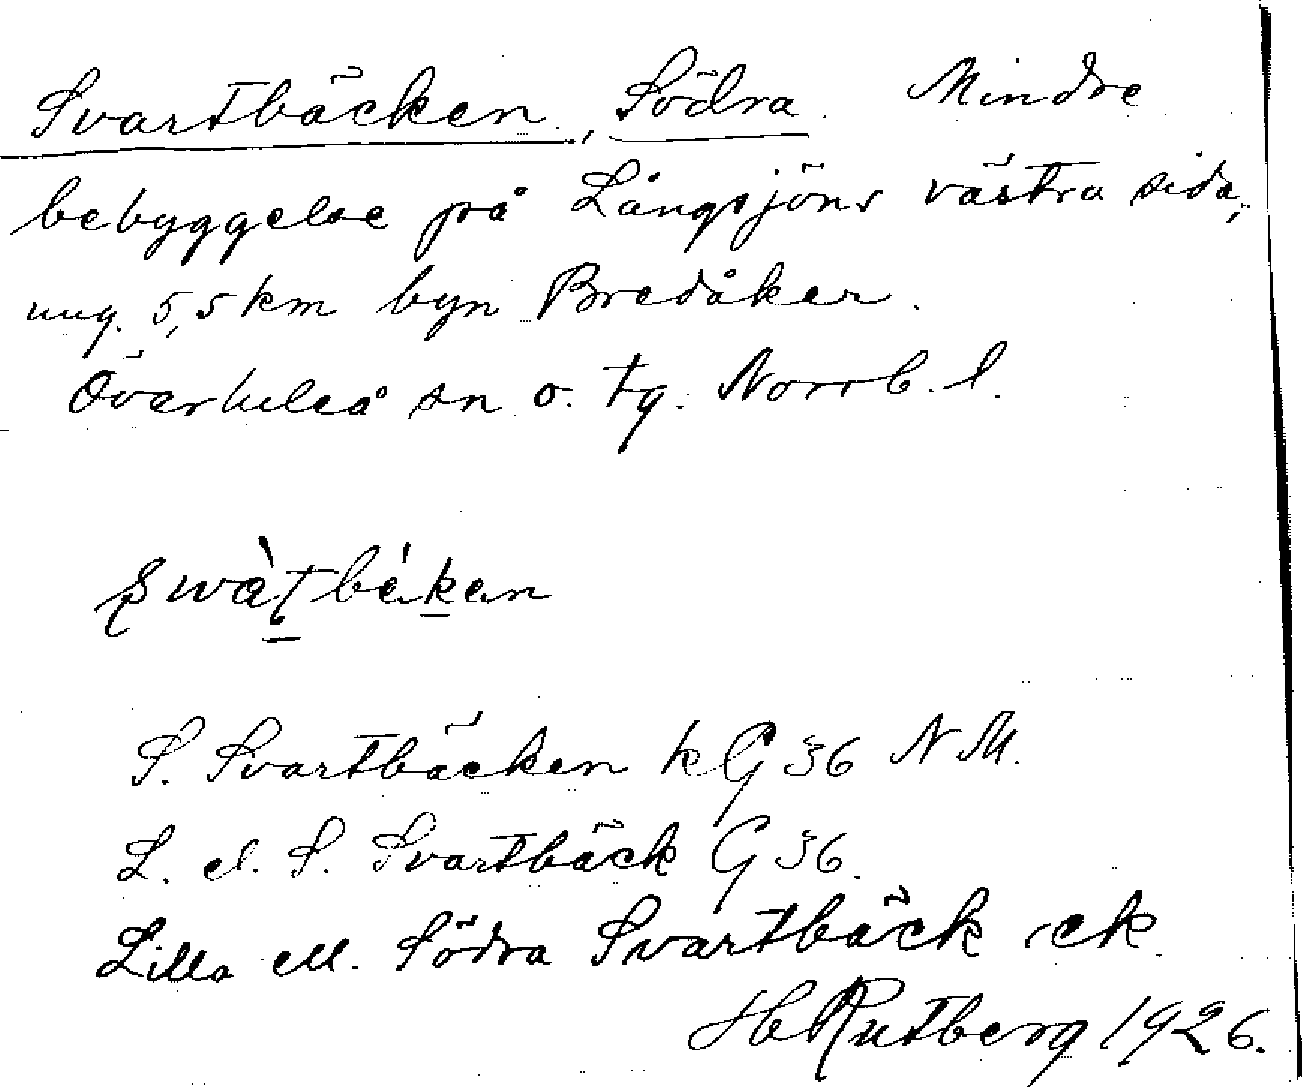 Svartbäcken, Södra. Mindre
bebyggelse på Långsjöns västra sida,
ung. 5,5 km byn Bredåker.
Överluleå sn o. tg. Norrb. l.
swàtbékan
S. Svartbäcken kG 36 NM.
L. el. S. Svartbäck G 36.
Lilla ell. Södra Svartbäck ek
H Rutberg 1926.